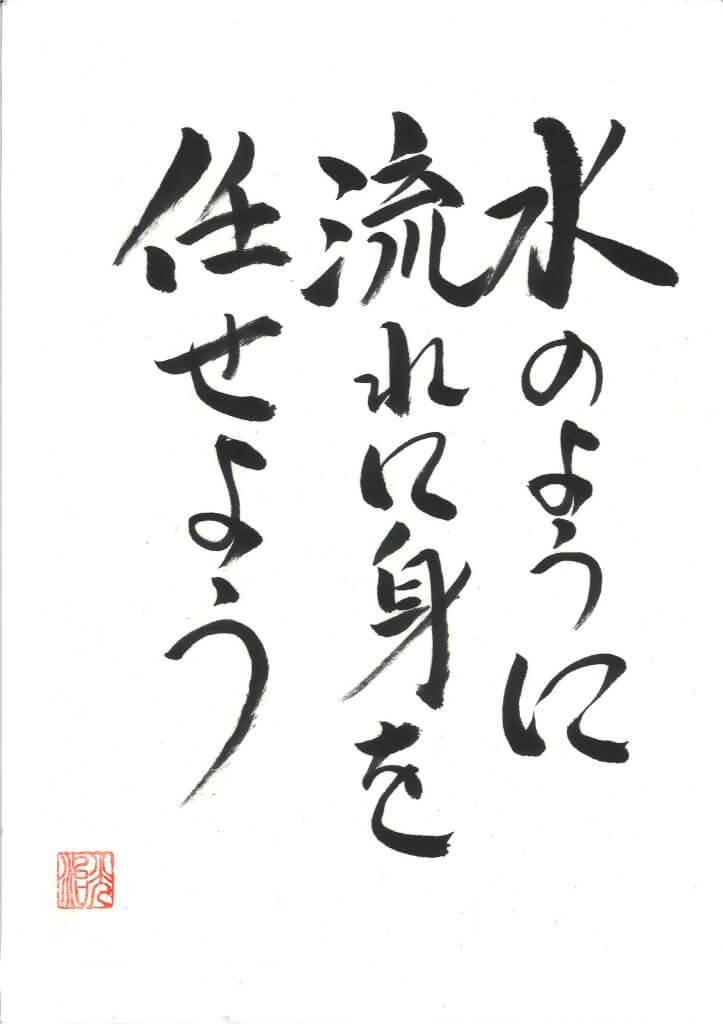 水のように
流れに身を
任せよう